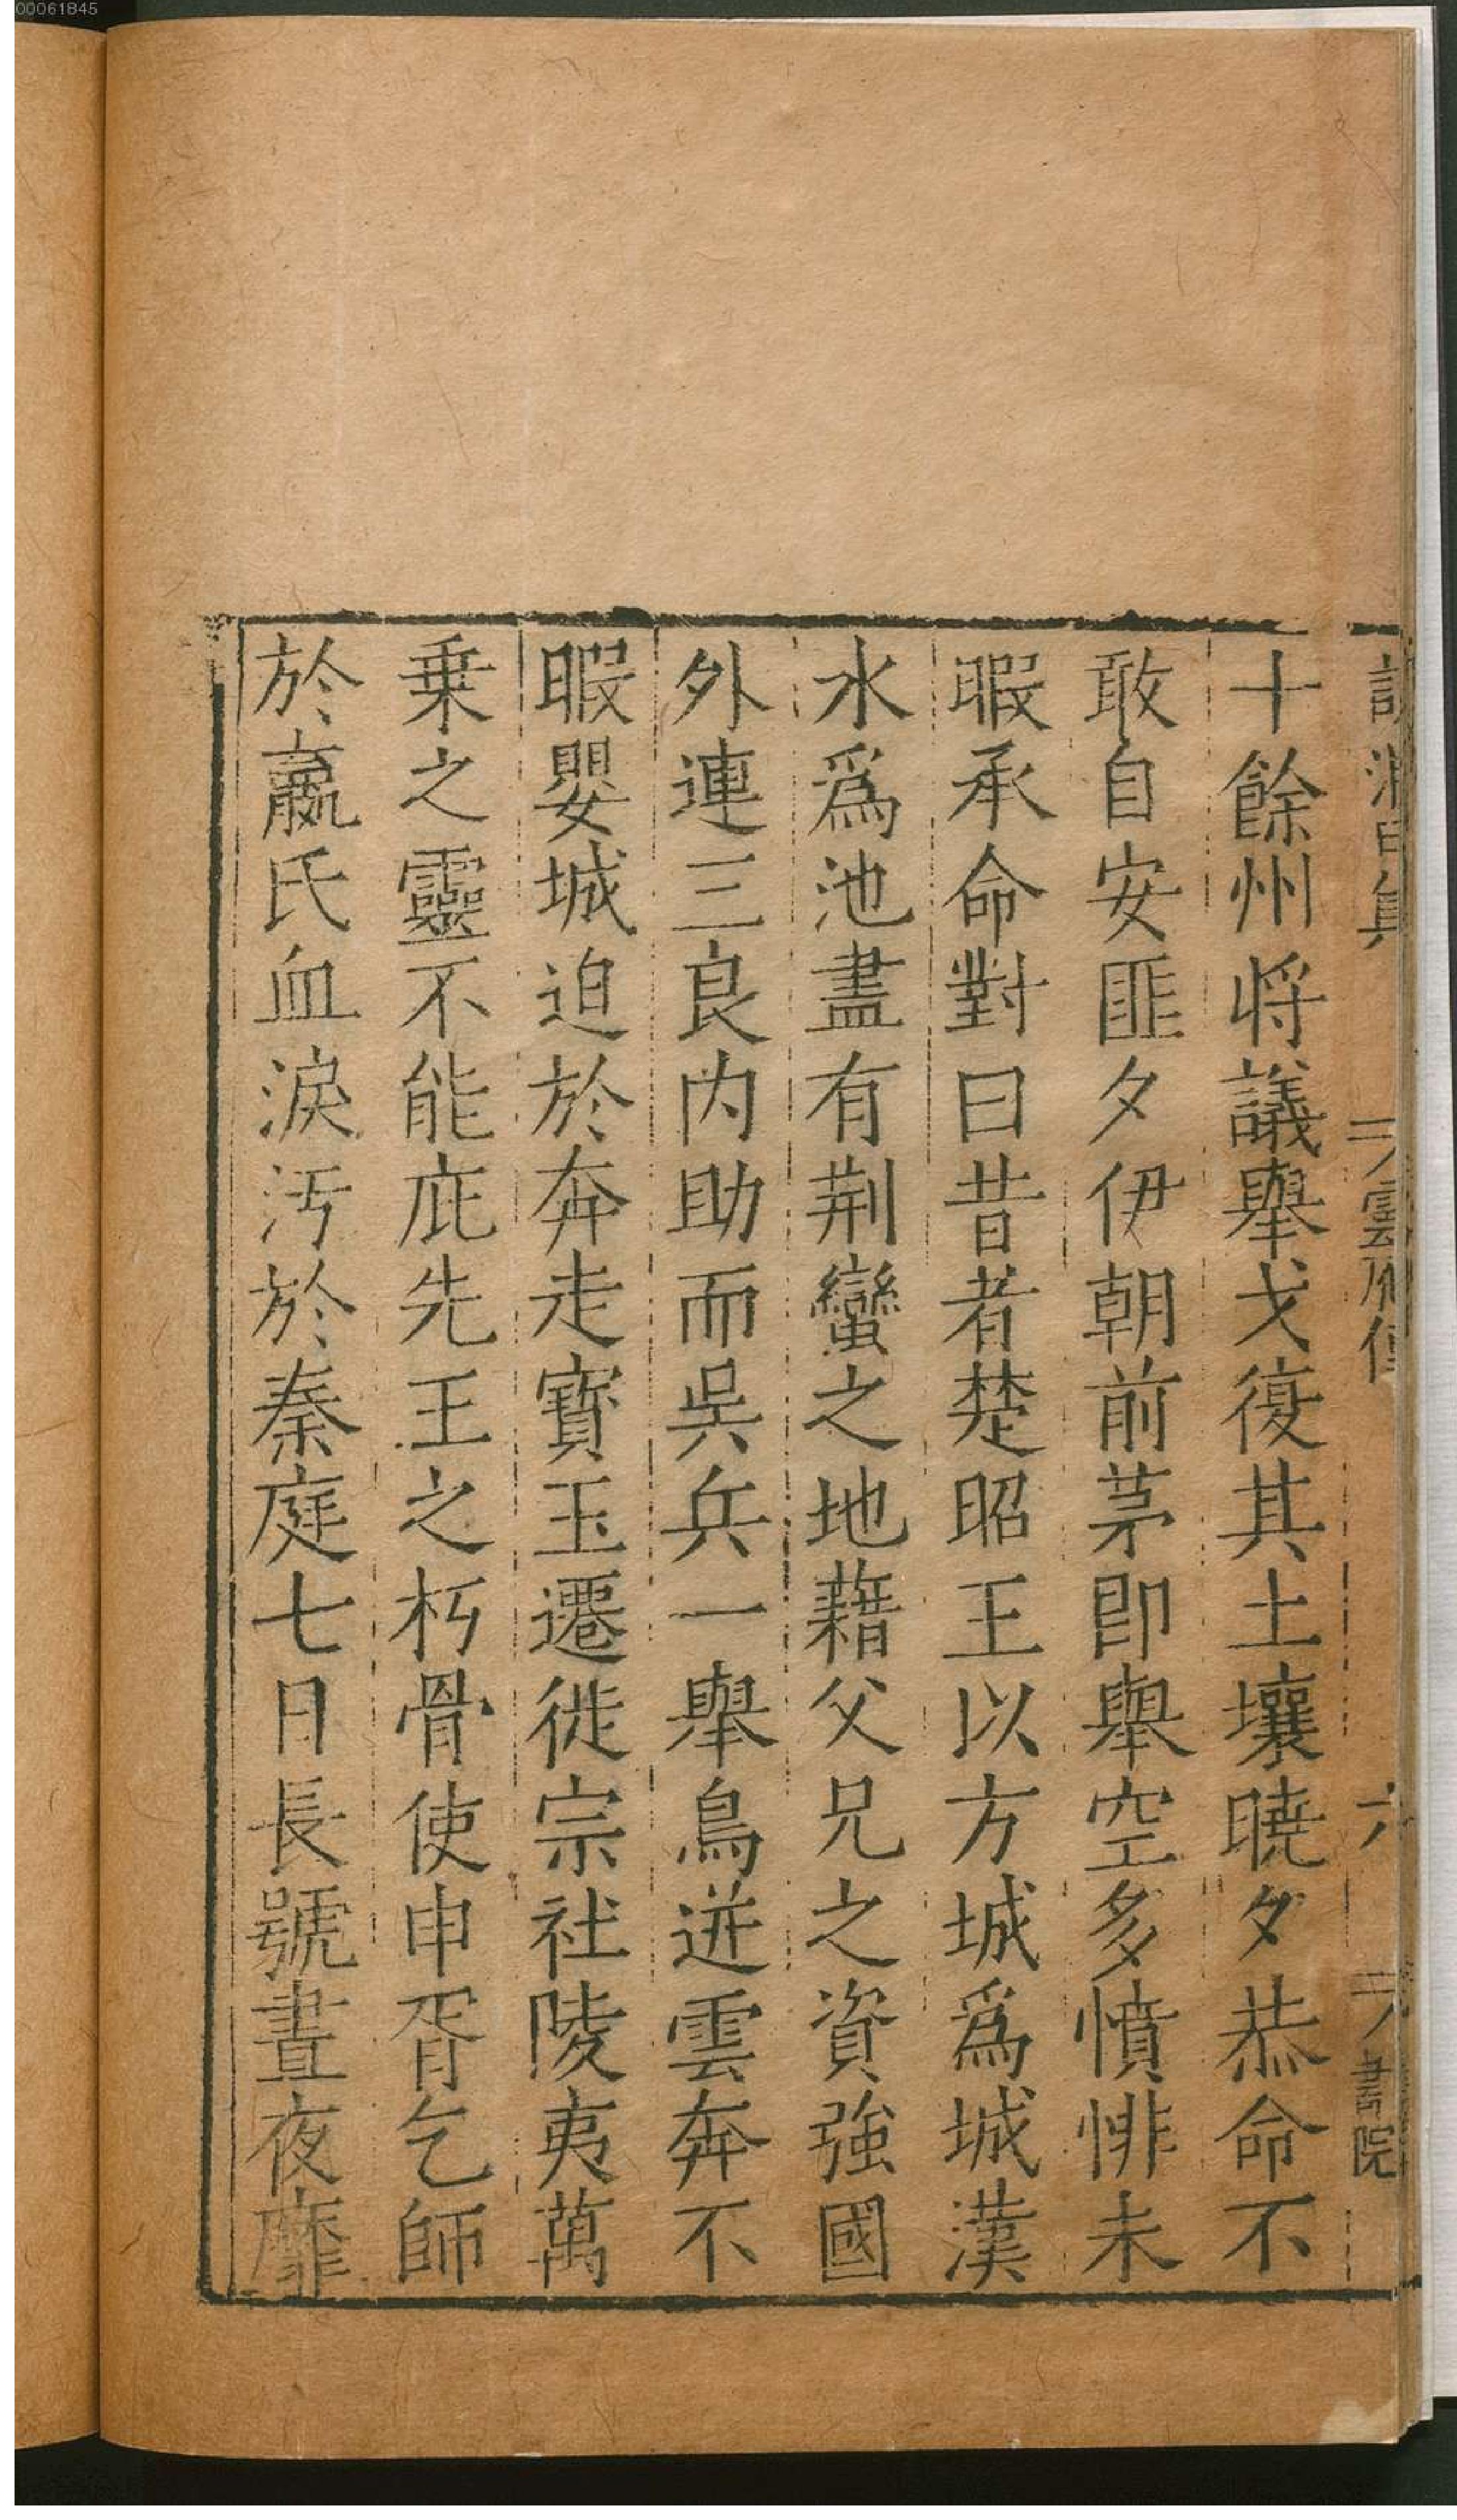 00061845
十餘州将議舉戈復其土壤暁夕恭命不
敢自安匪夕伊朝前茅即舉空多憤悱未
暇承命對曰昔者楚昭王以方城爲城漢
水爲池盡有荆蠻之地藉父兄之資強國
外連三良内助而吳兵一舉鳥迸雲奔不
暇嬰城迫於奔走寳玉遷徙宗社陵夷萬
乗之靈不能庇先王之朽骨使申胥乞師
於嬴氏血淚汚於秦庭七日長號晝夜靡
六
書院